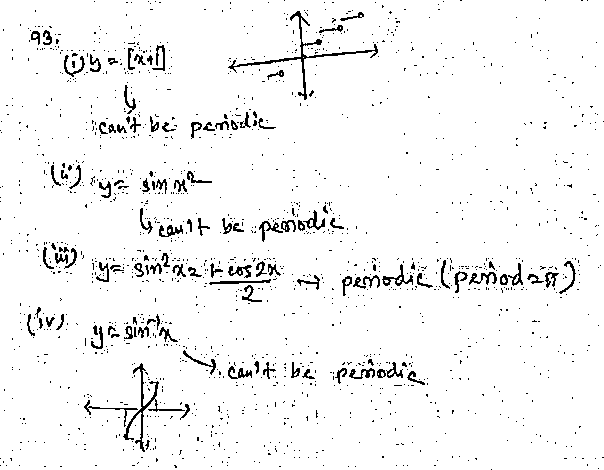 93.
(i) y = [x+1]
↳ can't be periodic
(ii) y = sin x²
↳ can't be periodic
(iii) y = sin²x = (1 - cos2x)/2 → periodic (period = π)
(iv) y = sin⁻¹x
→ can't be periodic